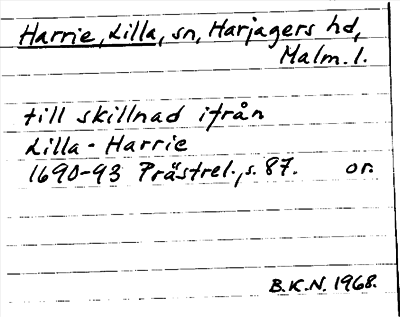 Harrie, Lilla, sn, Harjagers hd,
Malm. l.
till skillnad ifrån
Lilla-Harrie
1690-93 Prästrel., s. 87. or.
B.K.N. 1968.